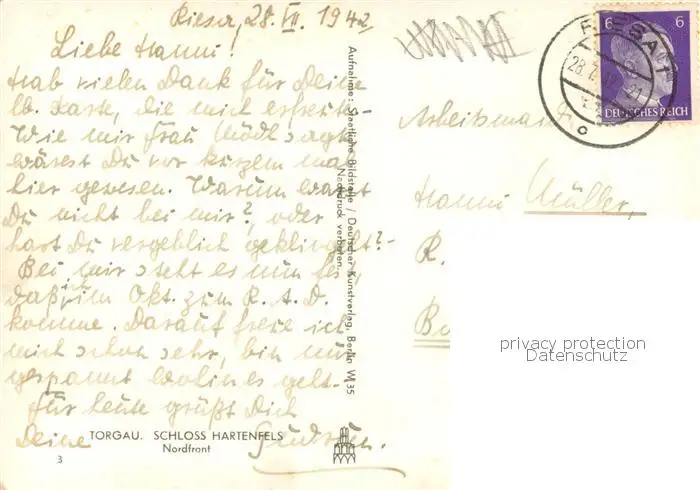 Riesa, 28. VII. 1942
Liebe Hanni!
Hab vielen Dank für Deine
lb. Karte, die mich erfreute.
Wie mir Frau Mödl sagte
wärest Du vor kurzem mal
hier gewesen. Warum warst
Du nicht bei mir?, oder
hast Du vergeblich geklingelt?-
Bei mir steht es nun fest
daß ich im Okt. zum R.A.D.
komme. Darauf freue ich
mich schon sehr, bin nun
gespannt wohin es geht.-
Für heute grüßt Dich
Deine
TORGAU. SCHLOSS HARTENFELS
Nordfront
3
Aufnahme: Staatliche Bildstelle / Deutscher Kunstverlag, Berlin W 35
Nachdruck verboten.
6 6
DEUTSCHES REICH
RIESA 1
28.7.42
c
Hanni Müller,
R.
privacy protection
Datenschutz